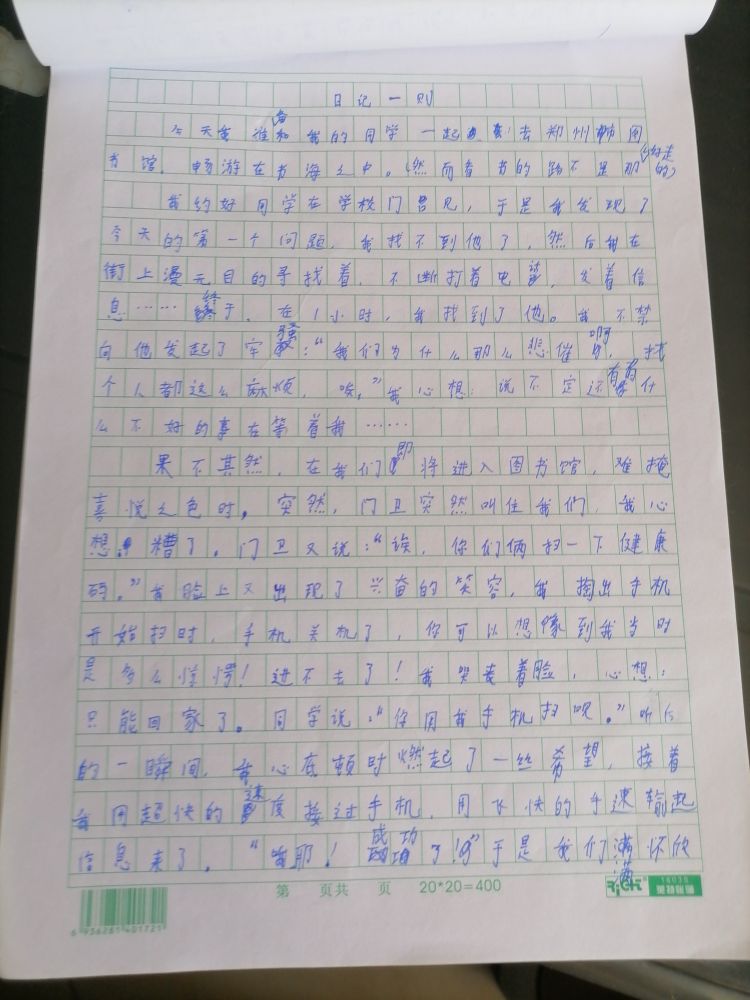 日记一则
今天我准备和我的同学一起去郑州市图
书馆,畅游在书海之中。然而看书的路不是那么好走的
我约好同学在学校门口见,于是我发现了
今天的第一个问题,我找不到他了,然后我在
街上漫无目的寻找着,不断打着电话,发着信
息……终于,在1小时,我找到了他。我不禁
向他发起了牢骚:“我们为什么那么悲催啊,找
个人都这么麻烦,唉。”我心想:说不定还有什
么不好的事在等着我……
果不其然,在我们即将进入图书馆,难掩
喜悦之色时,突然,门卫突然叫住我们,我心
想:糟了。门卫又说:“诶,你们俩扫一下健康
码。”我脸上又出现了兴奋的笑容,我掏出手机
开始扫时,手机关机了,你可以想像到我当时
是多么惊愕!进不去了!我哭丧着脸,心想:
只能回家了。同学说:“你用我手机扫呗。”听后
的一瞬间,我心在顿时燃起了一丝希望,接着
我用超快的速度接过手机,用飞快的手速输起
信息来了。“耶!成功了!”于是我们满怀欣
第 页共 页 20*20=400
16038
6 936261 401721